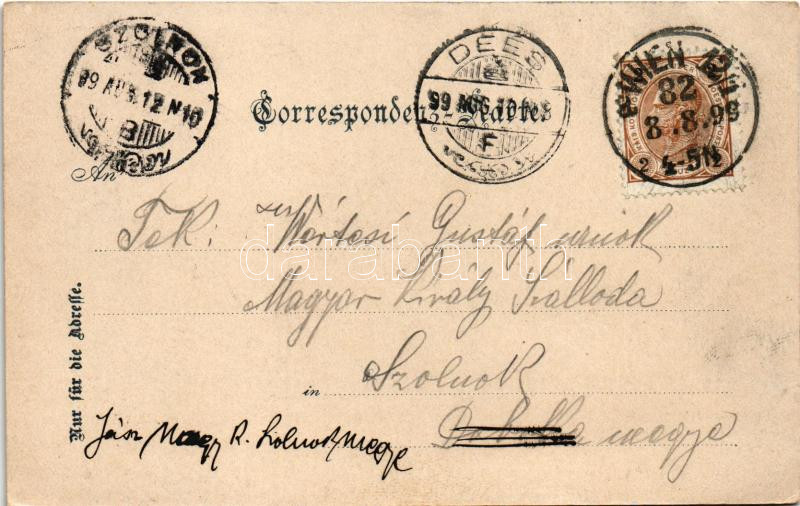 SZOLNOK
99 AUG. 12 N10
B
DEES
99 AUG. 10
F
WIEN
82
8.8.99
2 4-5N
Correspondenz-Karte
An
Tek: Gusztáf urnok
Magyar Király Szálloda
in Szolnok
megye
Jász Nagy K. Szolnok megye
Nur für die Adresse.
darabanth